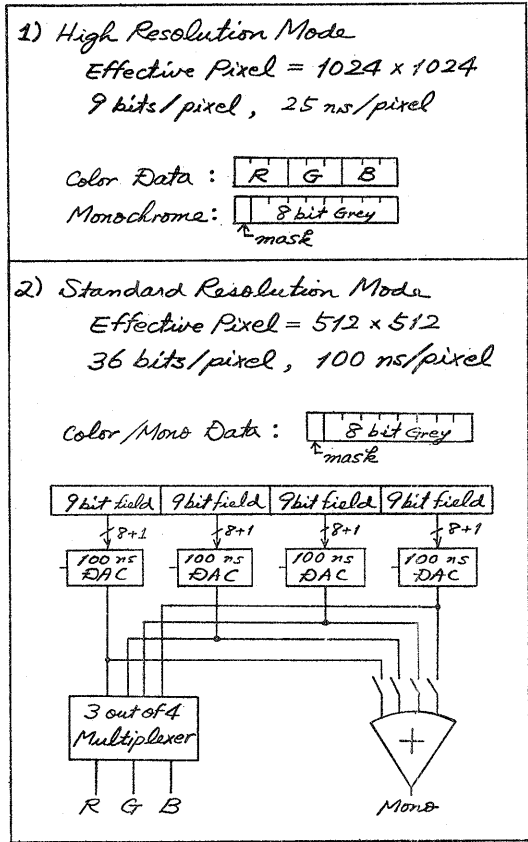 1) High Resolution Mode
Effective Pixel = 1024 x 1024
9 bits/pixel, 25 ns/pixel
Color Data: R G B
Monochrome: 8 bit Grey
mask
2) Standard Resolution Mode
Effective Pixel = 512 x 512
36 bits/pixel, 100 ns/pixel
Color/Mono Data: 8 bit Grey
mask
9 bit field 9 bit field 9 bit field 9 bit field
8+1 8+1 8+1 8+1
100 ns 100 ns 100 ns 100 ns
DAC DAC DAC DAC
3 out of 4
Multiplexer
+
R G B Mono